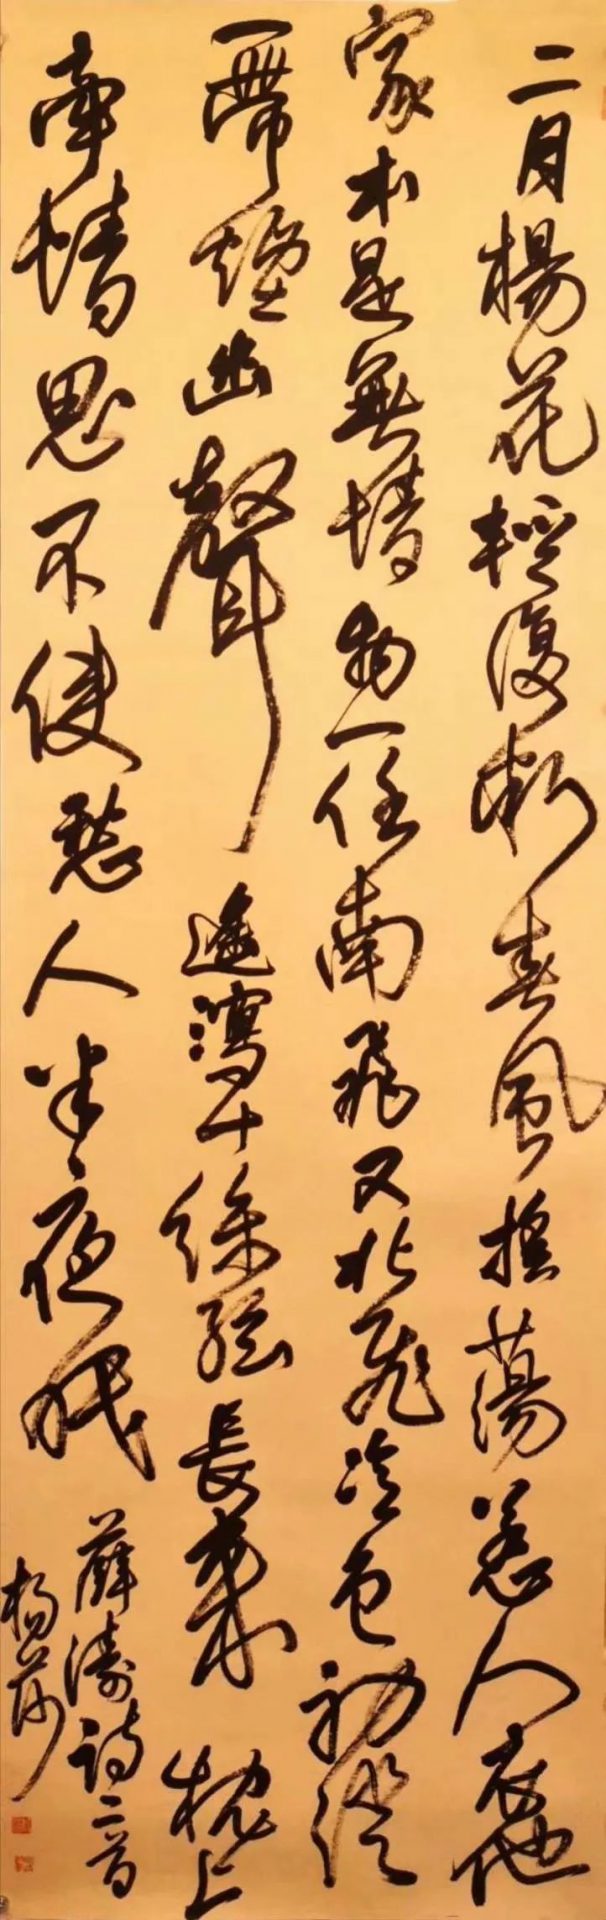 二月楊花輕復微春風搖蕩惹人衣他
家本是無情物一任南飛又北飛冷色初澄
一帶煙幽聲遙瀉十絲弦長來枕上
牽情思不使愁人半夜眠
薛濤詩二首
楊莎